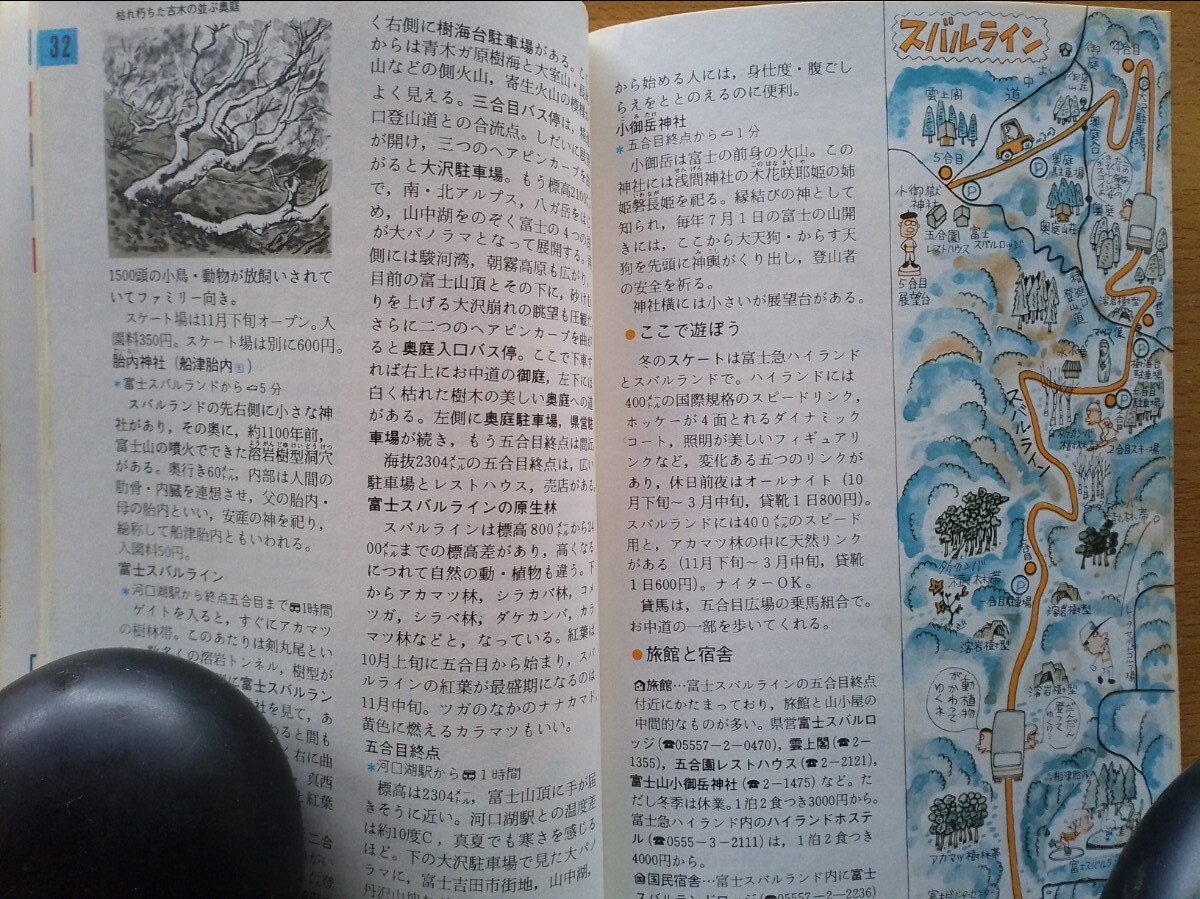 枯れ朽ちた古木の並ぶ奥庭
32
1500頭の小鳥・動物が放飼いされて
いてファミリー向き。
スケート場は11月下旬オープン。入
園料350円。スケート場は別に600円。
胎内神社（船津胎内）
*富士スバルランドから5分
スバルランドの先右側に小さな神
社があり、その奥に，約1100年前，
富士山の噴火でできた溶岩樹型洞穴
がある。奥行き60メートル，内部は人間の
肋骨・内臓を連想させ，父の胎内・
母の胎内といい，安産の神を祀り，
総称して船津胎内ともいわれる。
入園料50円。
富士スバルライン
*河口湖駅から終点五合目まで1時間
ゲイトを入ると，すぐにアカマツ
の樹林帯。このあたりは剣丸尾とい
数多くの溶岩トンネル，樹型が
に富士スバルラン
社を見て，あ
わると間も
右に曲
，真西
と紅葉
二合
く右側に樹海台駐車場がある。
からは青木ガ原樹海と大室山・
山などの側火山，寄生火山の
よく見える。三合目バス停は，
口登山道との合流点。しだいに
が開け，三つのヘアピンカーブを
がると大沢駐車場。もう標高2100
で，南・北アルプス，八ガ岳をは
め，山中湖をのぞく富士の4つの
が大パノラマとなって展開する。
側には駿河湾，朝霧高原も広がり，
目前の富士山頂とその下に，砕け
りを上げる大沢崩れの眺望も圧
さらに二つのヘアピンカーブを曲
ると奥庭入口バス停。ここで下車す
れば右上にお中道の御庭，左下には
白く枯れた樹木の美しい奥庭への道
がある。左側に奥庭駐車場，県営駐
車場が続き，もう五合目終点は間近。
海抜2304メートルの五合目終点は，広い
駐車場とレストハウス，売店がある。
富士スバルラインの原生林
スバルラインは標高800メートルから24
00メートルまでの標高差があり，高くなる
につれて自然の動・植物も違う。下
からアカマツ林，シラカバ林，コメ
ツガ，シラベ林，ダケカンバ，カラ
マツ林などと，なっている。紅葉は
10月上旬に五合目から始まり，スバ
ルラインの紅葉が最盛期になるのは
11月中旬。ツガのなかのナナカマド，
黄色に燃えるカラマツもいい。
五合目終点
*河口湖駅から1時間
標高は2304メートル，富士山頂に手が届
きそうに近い。河口湖駅との温度差
は約10度C，真夏でも寒さを感じる
ほど。下の大沢駐車場で見た大パノ
ラマに，富士吉田市街地，山中湖，
丹沢山地
から始める人には，身仕度・腹ごし
らえをととのえるのに便利。
小御岳神社
*五合目終点から1分
小御岳は富士の前身の火山。この
神社には浅間神社の木花咲耶姫の姉
姫磐長姫を祀る。縁結びの神として
知られ，毎年7月1日の富士の山開
きには，ここから大天狗・からす天
狗を先頭に神輿がくり出し，登山者
の安全を祈る。
神社横には小さいが展望台がある。
●ここで遊ぼう
冬のスケートは富士急ハイランド
とスバルランドで。ハイランドには
400メートルの国際規格のスピードリンク，
ホッケーが4面とれるダイナミック
コート，照明が美しいフィギュアリ
ンクなど，変化ある五つのリンクが
あり，休日前夜はオールナイト（10
月下旬～3月中旬，貸靴1日800円）。
スバルランドには400メートルのスピード
用と，アカマツ林の中に天然リンク
がある（11月下旬～3月中旬，貸靴
1日600円）。ナイターOK。
貸馬は，五合目広場の乗馬組合で。
お中道の一部を歩いてくれる。
●旅館と宿舎
旅館…富士スバルラインの五合目終点
付近にかたまっており，旅館と山小屋の
中間的なものが多い。県営富士スバルロ
ッジ（☎05557-2-0470），雲上閣（☎2-
1355），五合園レストハウス（☎2-2121），
富士山小御岳神社（☎2-1475）など。た
だし冬季は休業。1泊2食つき3000円から。
富士急ハイランド内のハイランドホス
テル（☎0555-3-2111）は，1泊2食つき
4000円から。
国民宿舎…富士スバルランド内に富士
スバルランドロッジ（☎05557-2-2236）
スバルライン
御庭
4合目
お中道
雲上閣
大沢駐車場
5合目
奥庭駐車場
小御嶽神社
五合園レストハウス
富士スバルロッヂ
奥庭山荘
奥庭
5合目展望台
溶岩樹型
樹海台駐車場
スバルライン
2合目スキー場
P
溶岩樹型
溶岩樹型
溶岩樹型
動植物がかわってゆくネ
だんだん登ってゆく
アカマツ樹林帯
船津胎内